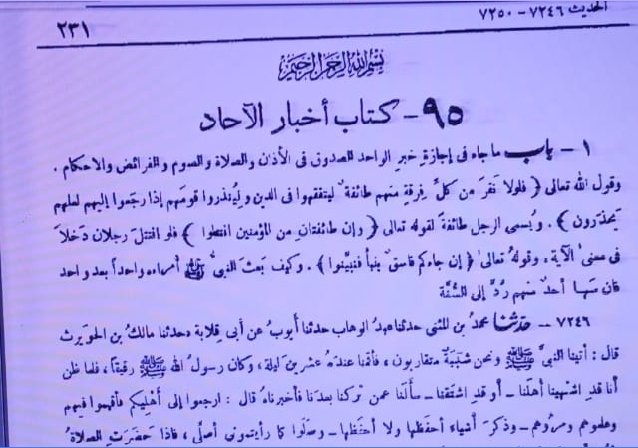 الحديث ٧٢٤٦ - ٧٢٥٠
٢٣١
بسم الله الرحمن الرحيم
٩٥ - كتاب أخبار الآحاد
١ - باب ما جاء فى إجازة خبر الواحد الصدوق فى الأذان والصلاة والصوم والفرائض والاحكام .
وقول الله تعالى ﴿ فلولا نفر من كل فرقة منهم طائفة ليتفقهوا فى الدين ولينذروا قومهم إذا رجعوا إليهم لعلهم
يحذرون ﴾ . ويسمى الرجل طائفة لقوله تعالى ﴿ وإن طائفتان من المؤمنين اقتتلوا ﴾ فلو اقتتل رجلان دخلا
فى معنى الآية . وقوله تعالى ﴿ إن جاءكم فاسق بنبأ فتبينوا ﴾ . وكيف بعث النبي ﷺ أمراءه واحداً بعد واحد
فان سها أحد منهم رد إلى السنة
٧٢٤٦ - حدثنا محمد بن المثنى حدثنا عبد الوهاب حدثنا أيوب عن أبى قلابة « حدثنا مالك بن الحويرث
قال : أتينا النبي ﷺ ونحن شببة متقاربون ، فأقمنا عنده عشرين ليلة ، وكان رسول الله ﷺ رفيقاً ، فلما ظن
أنا قد اشتهينا أهلنا - أو قد اشتقنا - سألنا عمن تركنا بعدنا فأخبرناه قال : ارجعوا إلى أهليكم فأقيموا فيهم
وعلموهم ومروهم - وذكر أشياء أحفظها ولا أحفظها - وصلوا كما رأيتمونى أصلى ، فاذا حضرت الصلاة